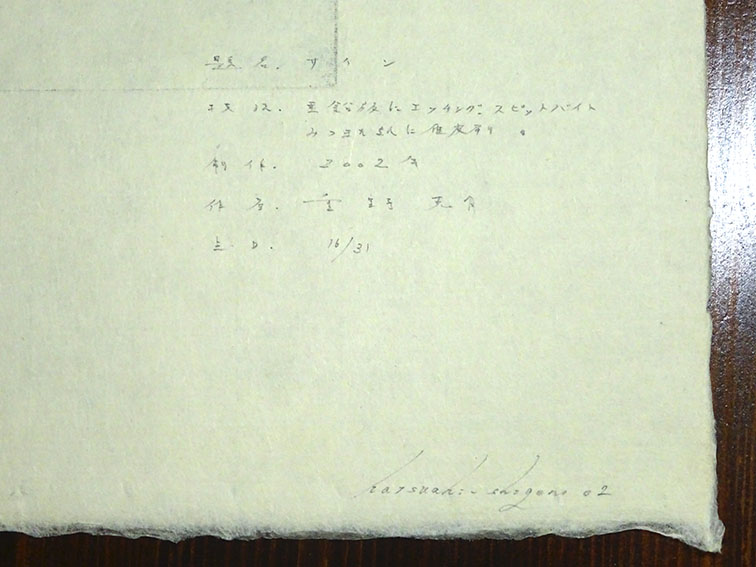 題名. サイン
技法. 亜鉛版にエッチング. スピットバイト
みつまた紙に雁皮刷り。
制作. 2002年
作者. 重野 克明
E.D. 16/31
Katsuaki Shigeno 02